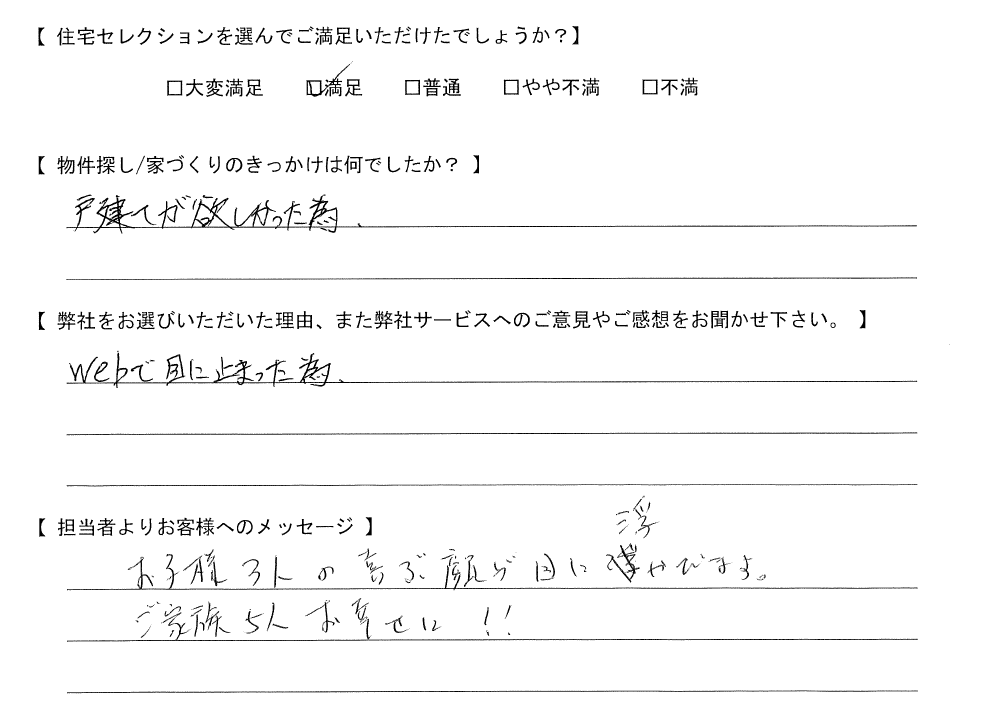 【 住宅セレクションを選んでご満足いただけたでしょうか？】
□大変満足 ☑満足 □普通 □やや不満 □不満
【 物件探し/家づくりのきっかけは何でしたか？ 】
戸建てが欲しかった為.
【 弊社をお選びいただいた理由、また弊社サービスへのご意見やご感想をお聞かせ下さい。 】
webで目に止まった為、
【 担当者よりお客様へのメッセージ 】
お子様3人の喜ぶ顔が目に浮かびます。
ご家族5人お幸せに!!